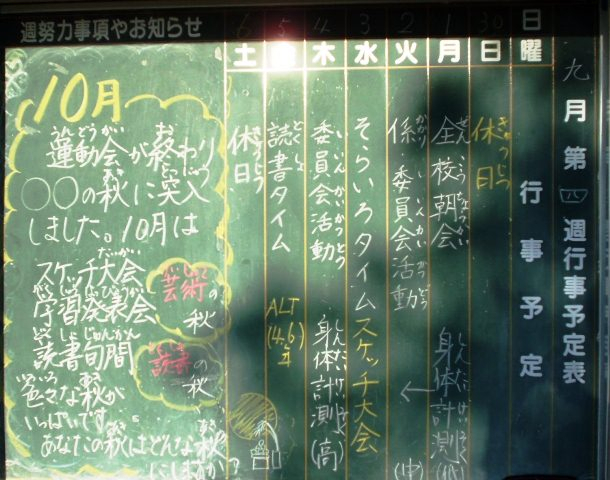 九月第四週行事予定表
日 曜 行事予定
30 日 休日
きゅうじつ
1 月 全校朝会 身体計測(低)
2 火 係・委員会活動 ← (中)
3 水 そらいろタイム スケッチ大会
4 木 委員会活動 身体計測(高)
5 読書タイム ALT(4.6)年
6 土 休日
週努力事項やお知らせ
10月
運動会が終わり
○○の秋に突入
しました。10月は
スケッチ大会
学習発表会
読書旬間
芸術の秋
読書の秋
色々な秋が
いっぱいです
あなたの秋はどんな秋
にしますか?